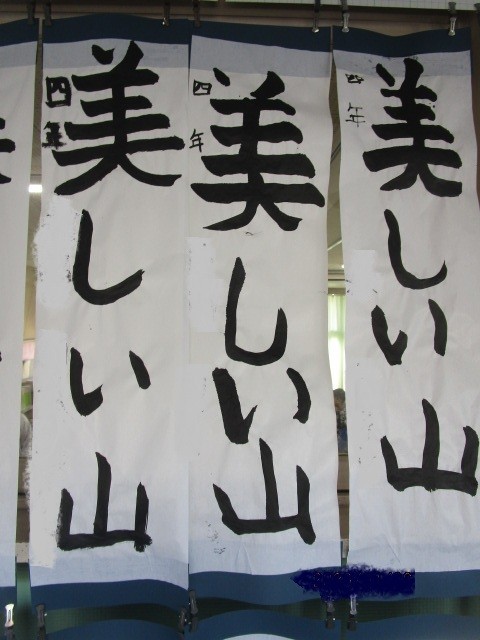 美しい山
四年
美しい山
四年
美しい山
四年